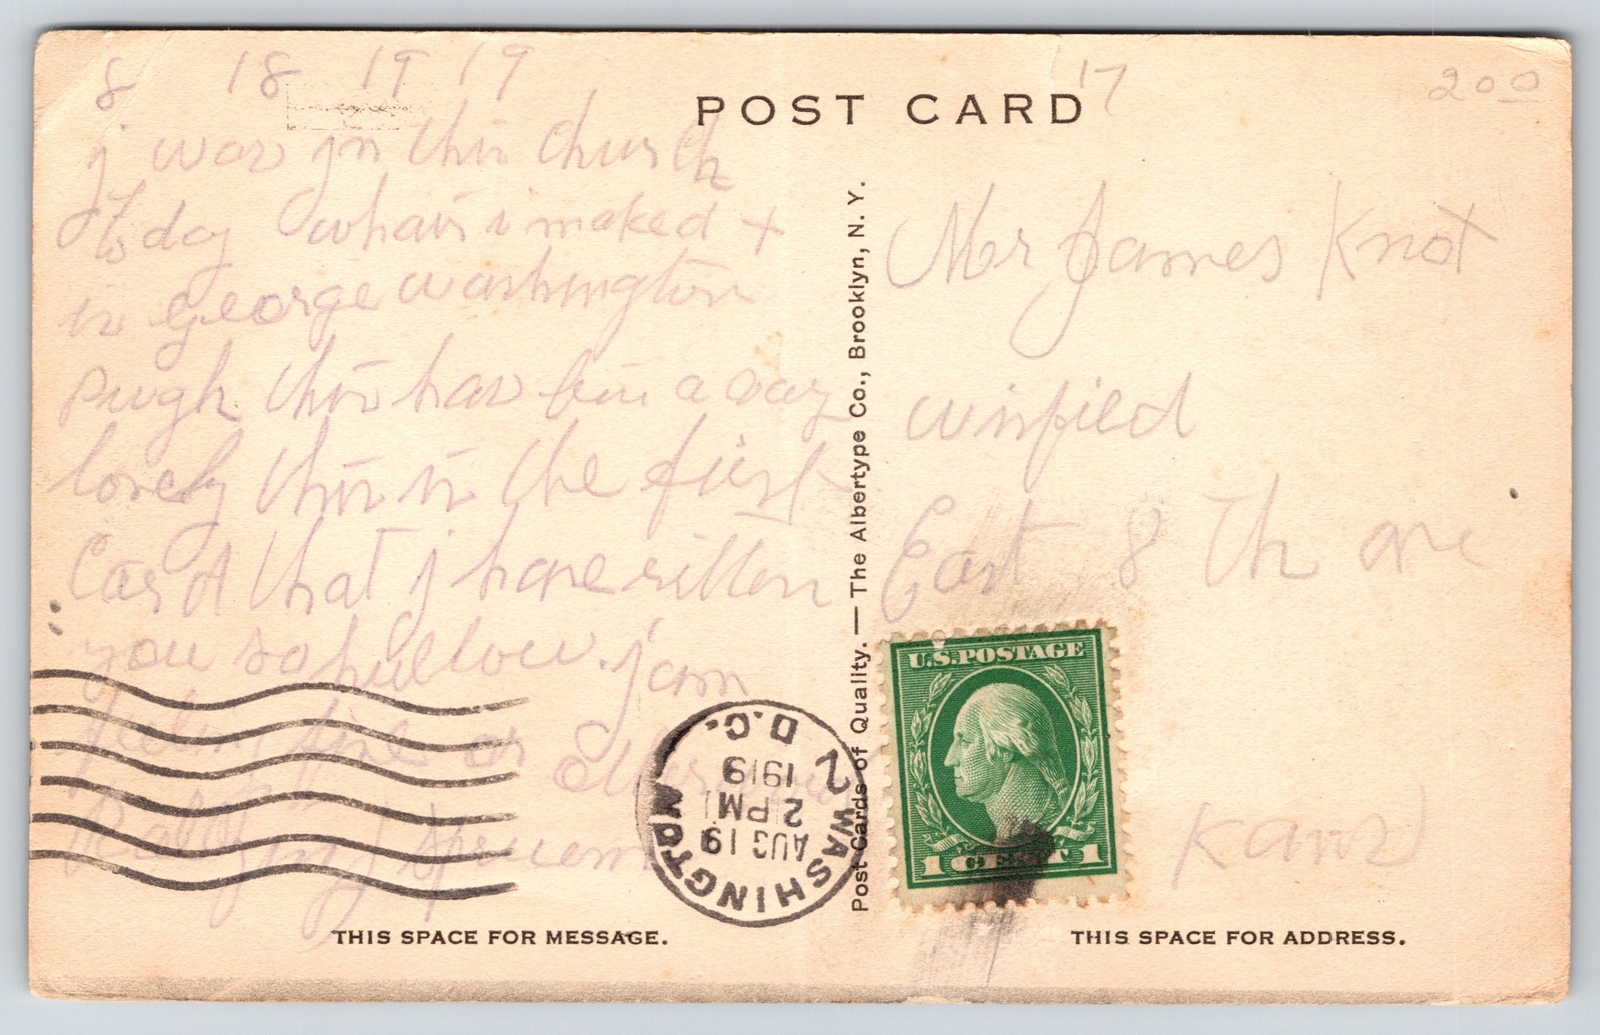 8 18 19 19
17
200
POST CARD
j was jn this church
to day whair i maked +
in George washington
pugh this has bin a vay
lovely this is the first
Card that j have ritton
you so hullow. j am
feeling fine as
Mr James Knot
winfied
East 8 Th ave
Kans
Post Cards of Quality. — The Albertype Co., Brooklyn, N. Y.
U.S. POSTAGE
1 CENT 1
WASHINGTON
D.C.
2
AUG 19
2 PM
1919
THIS SPACE FOR MESSAGE.
THIS SPACE FOR ADDRESS.